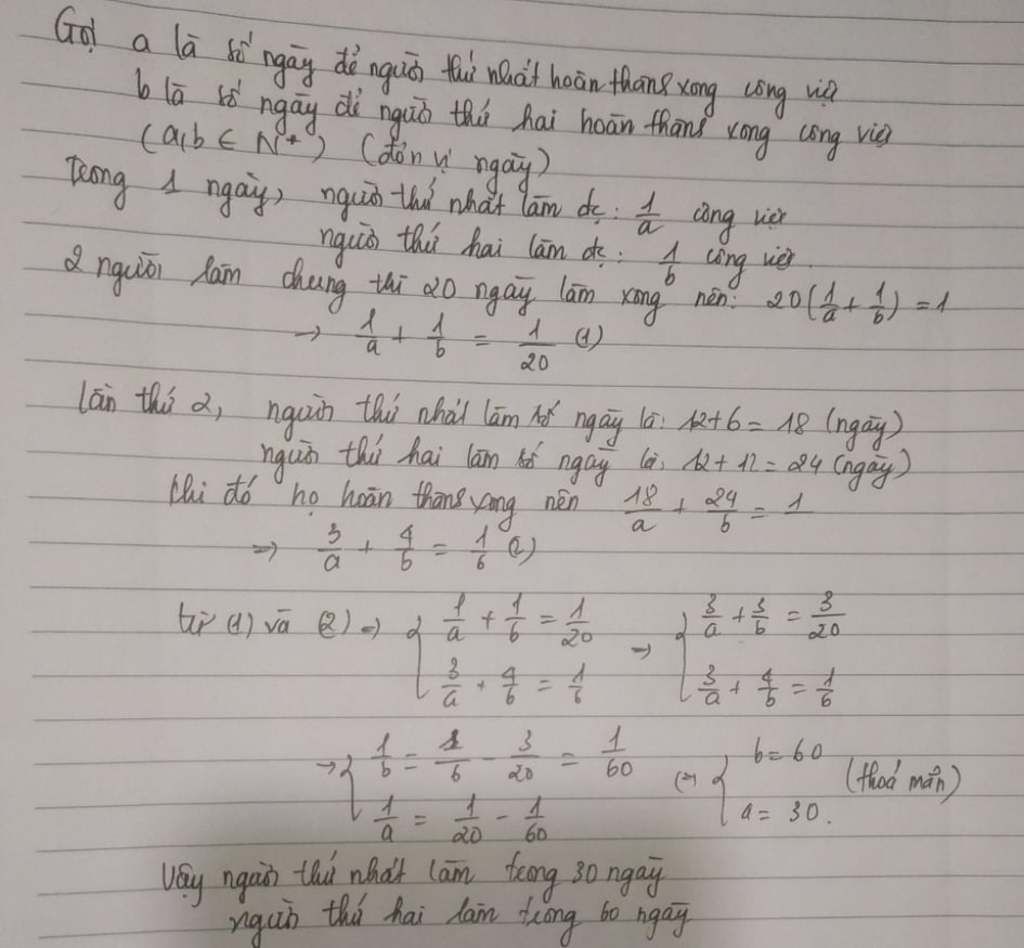 Gọi a là số ngày để người thứ nhất hoàn thành xong công việc
b là số ngày để người thứ hai hoàn thành xong công việc
(a,b ∈ N*) (đơn vị ngày)
Trong 1 ngày, người thứ nhất làm đc: 1/a công việc
người thứ hai làm đc: 1/b công việc
2 người làm chung thì 20 ngày làm xong nên: 20(1/a + 1/b) = 1
→ 1/a + 1/b = 1/20 (1)
Lần thứ 2, người thứ nhất làm số ngày là: 12+6 = 18 (ngày)
người thứ hai làm số ngày là: 12+12 = 24 (ngày)
khi đó họ hoàn thành xong nên 18/a + 24/b = 1
=> 3/a + 4/b = 1/6 (2)
từ (1) và (2) => { 1/a + 1/b = 1/20 → { 3/a + 3/b = 3/20
3/a + 4/b = 1/6 3/a + 4/b = 1/6
→ { 1/b = 1/6 - 3/20 = 1/60 (=) { b = 60 (thoả mãn)
1/a = 1/20 - 1/60 a = 30.
Vậy người thứ nhất làm trong 30 ngày
người thứ hai làm trong 60 ngày